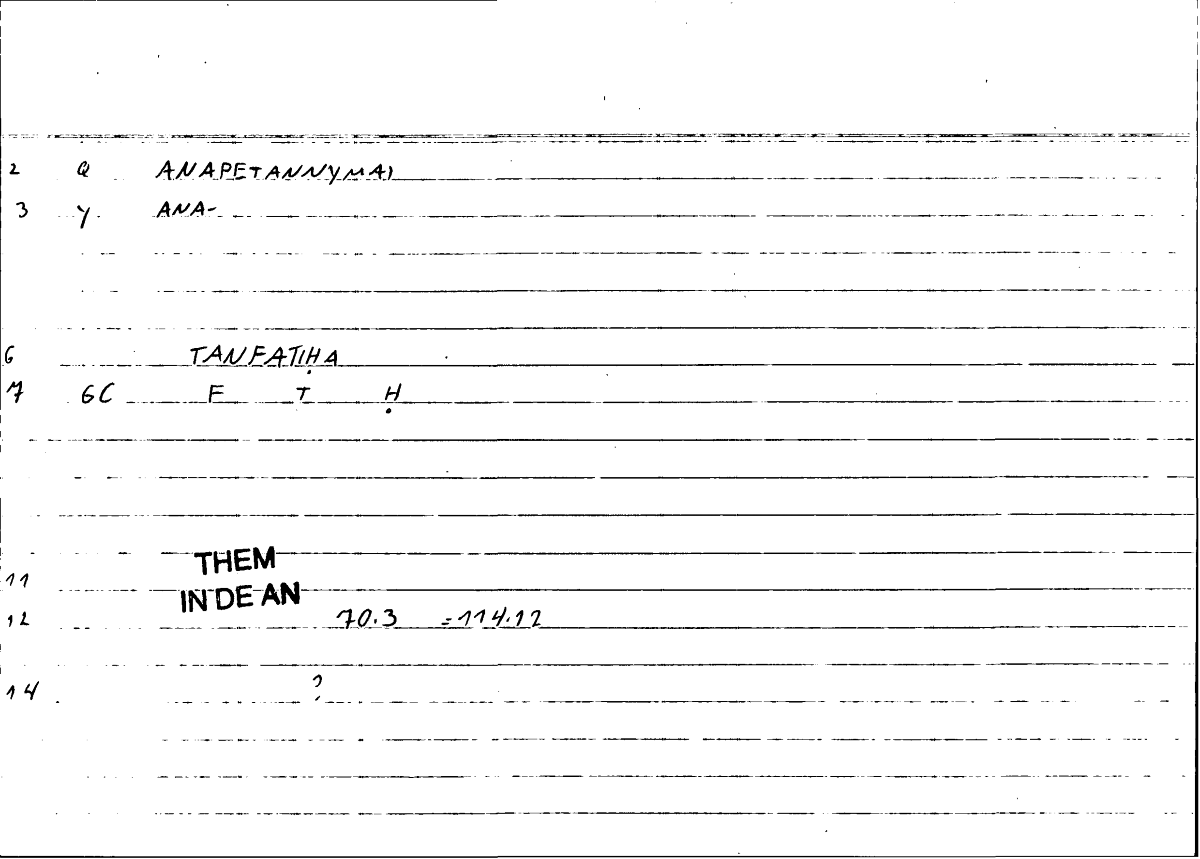 2 Q ANAPETANNYMAI
3 Y ANA-
6 TANFATIḤA
7 GC F T Ḥ
THEM
11 IN DE AN
12 70.3 =114.12
14 ?